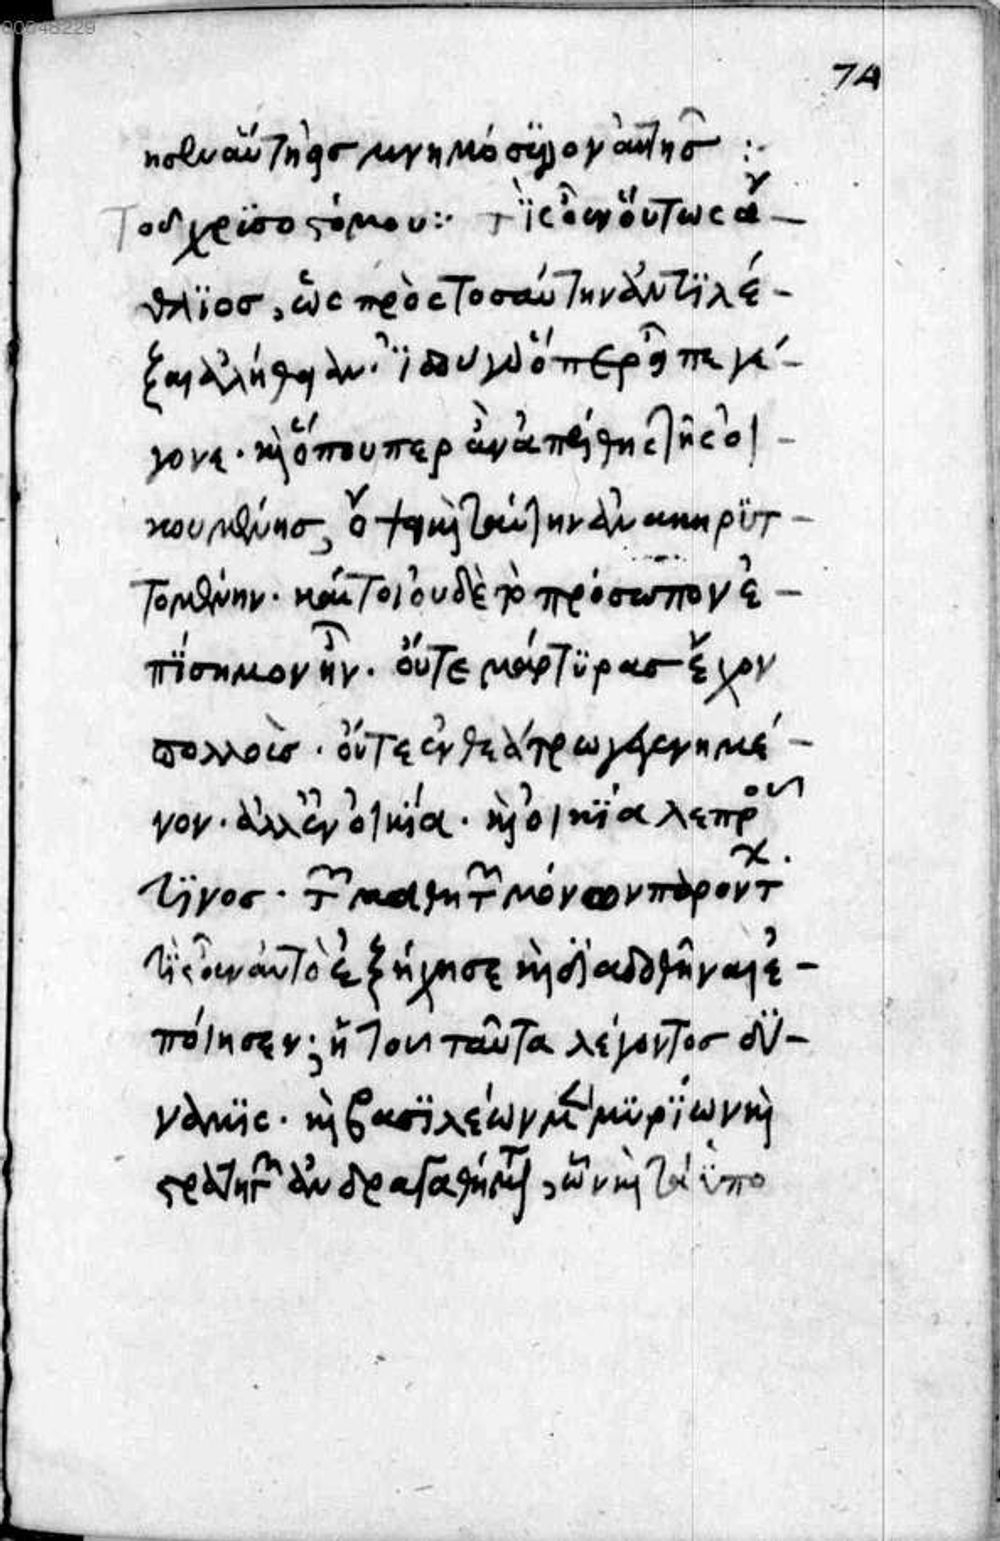 74
ησεν αὕτη εἰς μνημόσϋνον αὐτῆς :-
Τοῦ χρϋσοστόμου :· τίς οὖν οὕτως ἄ-
θλϊος, ὡς πρὸς τοσαύτην ἀντϊλέ-
ξαι ἀλήθειαν. ἰδοὺ γὰρ ὅπερ εἶπε γέ-
γονε. καὶ ὅπουπερ ἂν ἀπέλθης τῆς οἰ-
κουμένης, ὄψει καὶ ταύτην ἀνακηρϋτ-
τομένην. καίτοι οὐδὲ τὸ πρόσωπον ἐ-
πίσημον ἦν. οὔτε μάρτϋρας ἔχον
πολλοὺς. οὔτε ἐν θεάτρω γεγενημέ-
νον. ἀλλ' ἐν οἰκία. καὶ οἰκία λεπροῦ
τϊνος. τῶν μαθητῶν μόνων παρόντων.
τίς οὖν αὐτὸ ἐξήχησε καὶ διαδοθῆναι ἐ-
ποίησεν; ἡ τοῦ ταῦτα λέγοντος δύ-
ναμϊς. καὶ βασϊλέων μὲν μϋρίων καὶ
στρατηγῶν ἀνδραγαθήματα, ὧν καὶ τὰ ὑπο